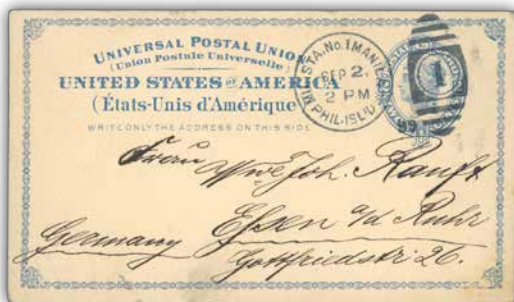 UNIVERSAL POSTAL UNION
(Union Postale Universelle)
UNITED STATES OF AMERICA
(États-Unis d'Amérique)
WRITE ONLY THE ADDRESS ON THIS SIDE
MIL. STA. No. 1 MANILA
SEP 2.
2 PM
99
PHIL. ISL'DS
1
Frau
Wwe Joh. Ranft
Essen a/d Ruhr
Germany
Gottfriedstr 26.